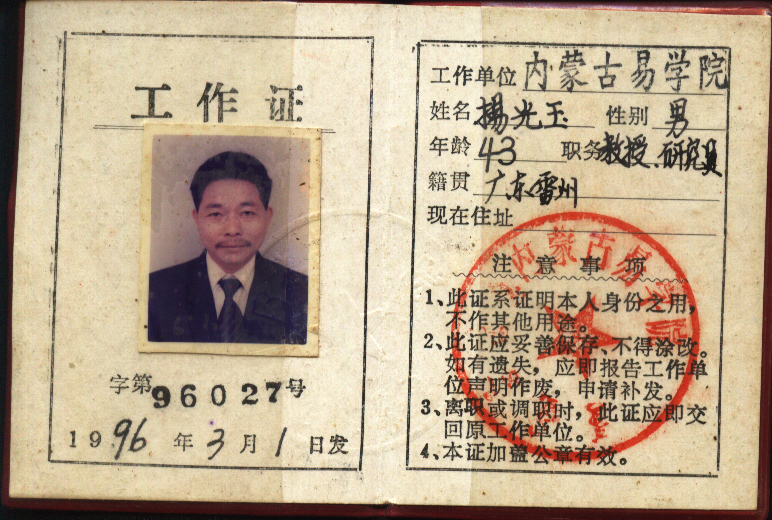 工作证
字第96027号
1996年3月1日发
工作单位 内蒙古易学院
姓名 揚光玉 性别 男
年龄 43 职务 教授、研究员
籍贯 广东雷州
现在住址
注意事项
1、此证系证明本人身份之用,
不作其他用途。
2、此证应妥善保存、不得涂改。
如有遗失,应即报告工作单
位声明作废,申请补发。
3、离职或调职时,此证应即交
回原工作单位。
4、本证加盖公章有效。
内蒙古易学院